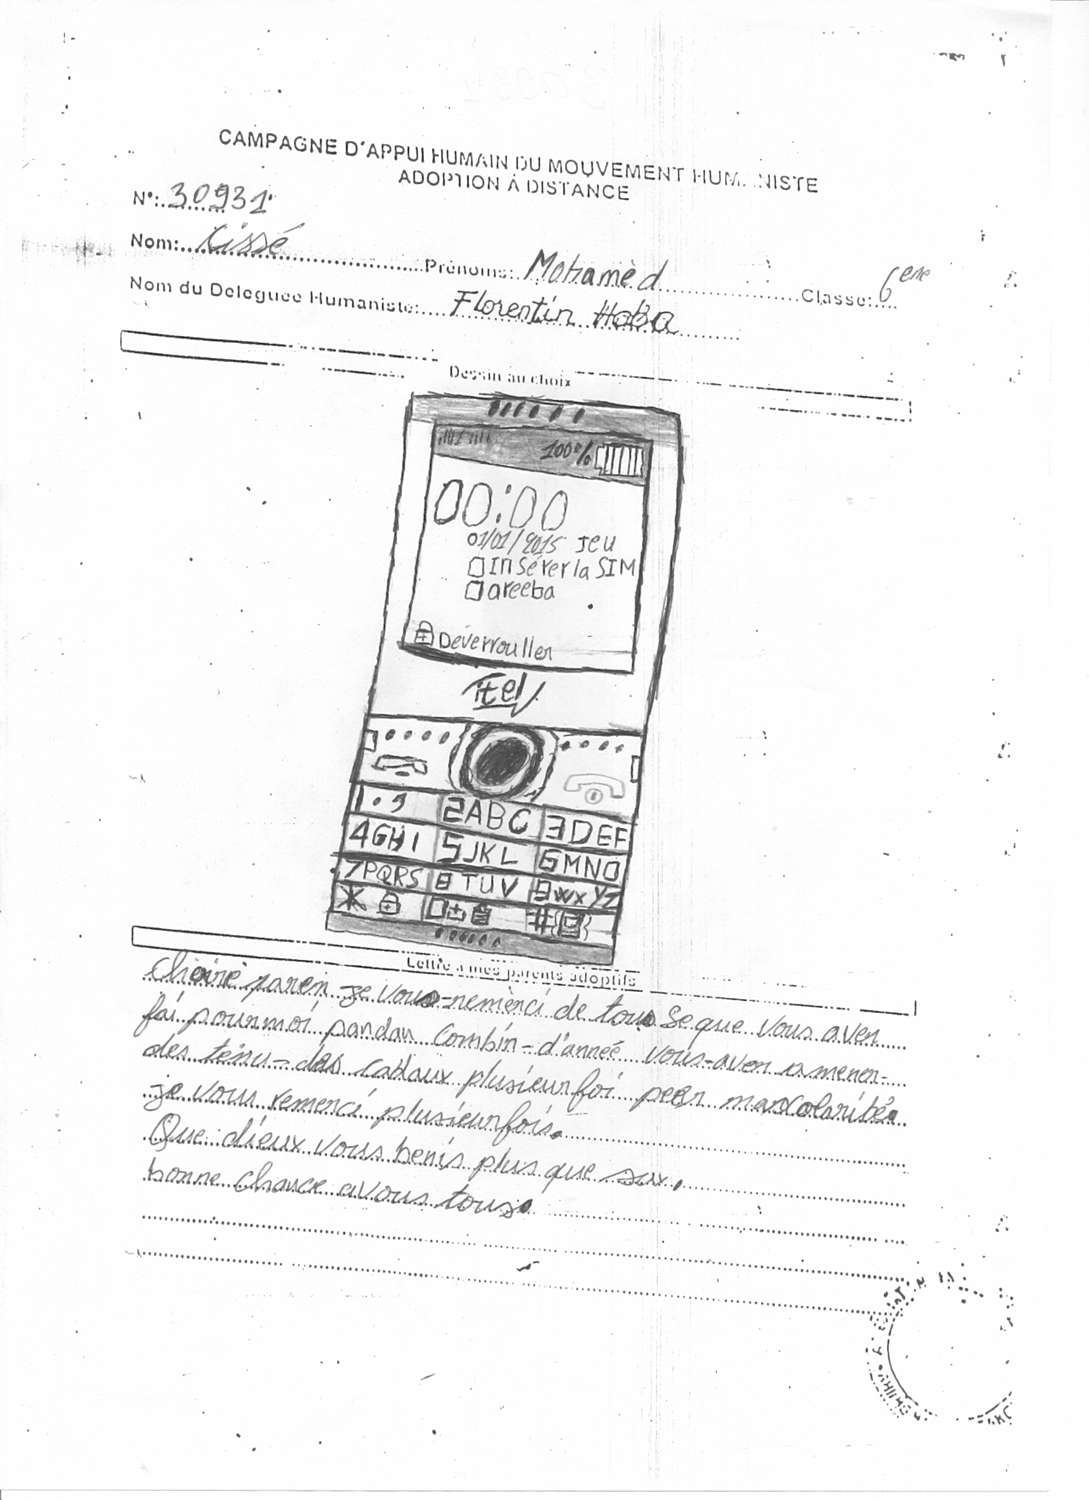 CAMPAGNE D'APPUI HUMAIN DU MOUVEMENT HUMANISTE
ADOPTION À DISTANCE
N°: 30931
Nom: Kissé Prénoms: Mohamèd Classe: 6eme
Nom du Déléguée Humaniste: Florentin Haba
Dessin au choix
100%
00:00
01/01/2015 Jeu
Insérer la SIM
areeba
Déverrouller
itel
1 . 9 2ABC 3DEF
4GHI 5JKL 6MNO
7PQRS 8TUV 9WXYZ
* #
Lettre à mes parents adoptifs
Cheire paren je vous-remèrci de tous se que vous aven
fai pourmoi pandan combin-d'année vous-aven amener-
des tenu-des cadaux plusieurfoi
je vous remerci plusieurfois.
Que dieux vous benis plus que sax.
bonne chance avous tous.